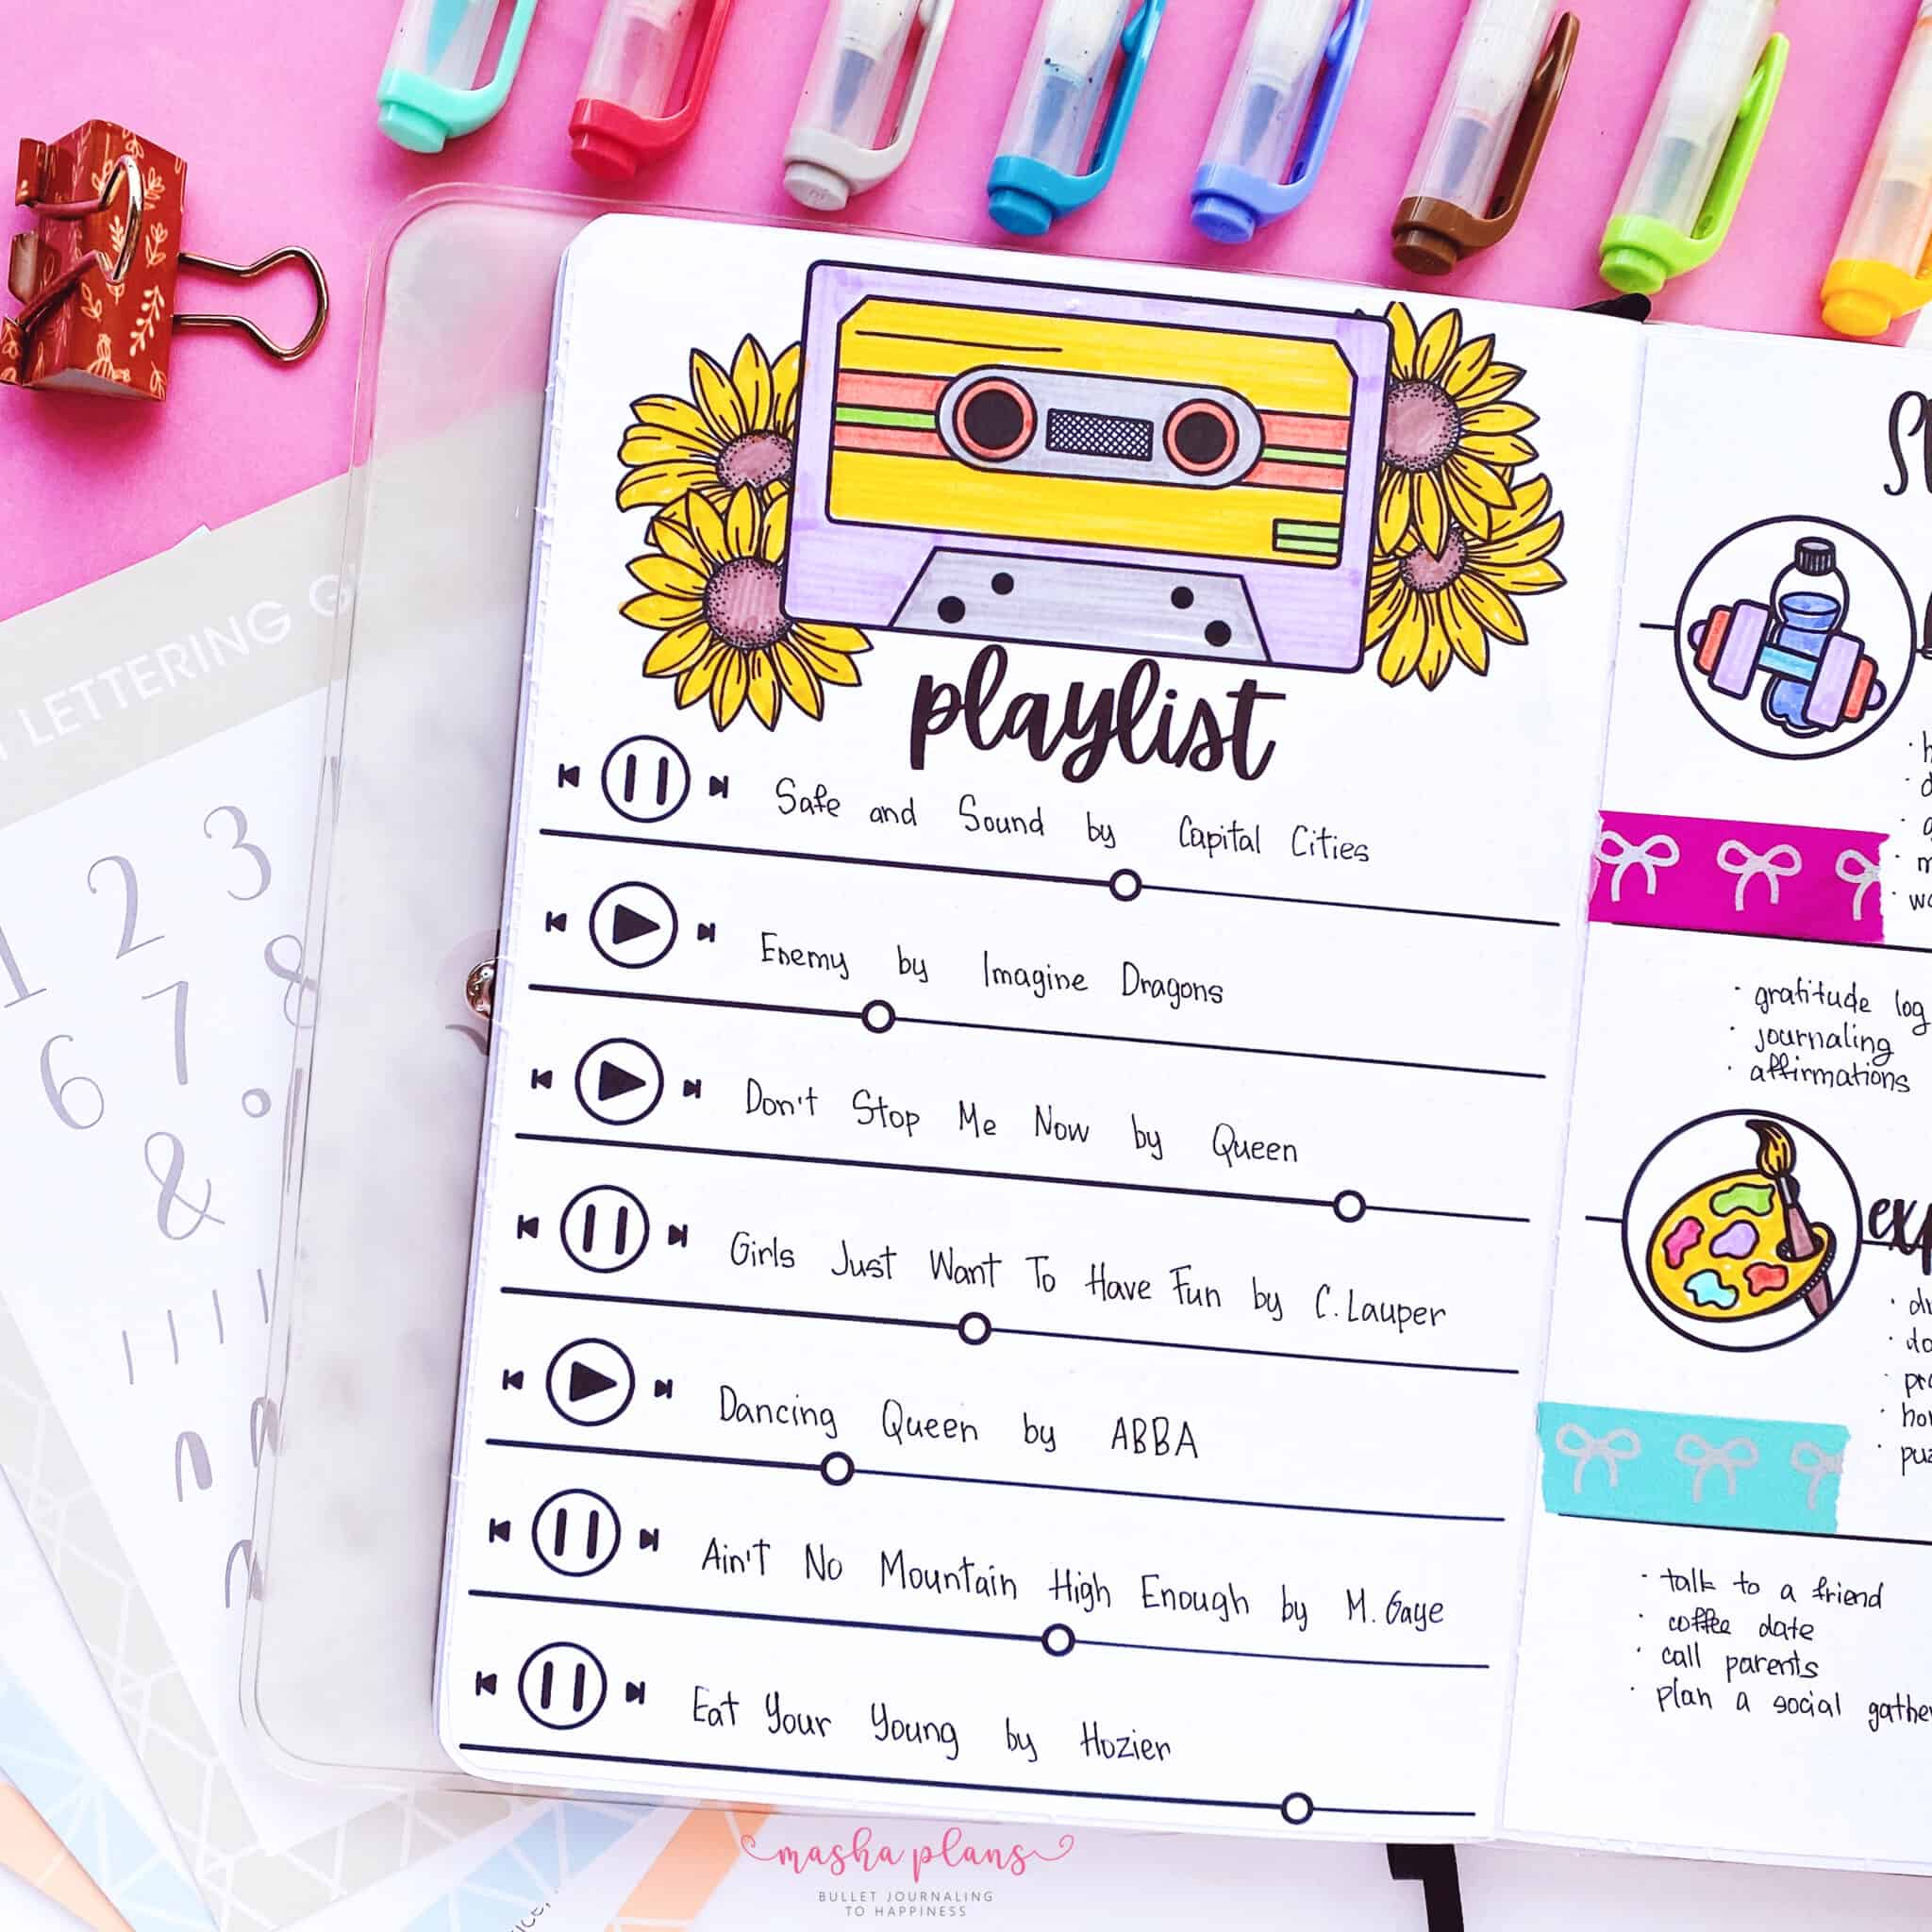 LETTERING
1 2 3
6 7 8
&
playlist
Safe and Sound by Capital Cities
Enemy by Imagine Dragons
Don't Stop Me Now by Queen
Girls Just Want To Have Fun by C. Lauper
Dancing Queen by ABBA
Ain't No Mountain High Enough by M. Gaye
Eat Your Young by Hozier
· gratitude log
· journaling
· affirmations
· talk to a friend
· coffee date
· call parents
· plan a social
masha plans
BULLET JOURNALING
TO HAPPINESS